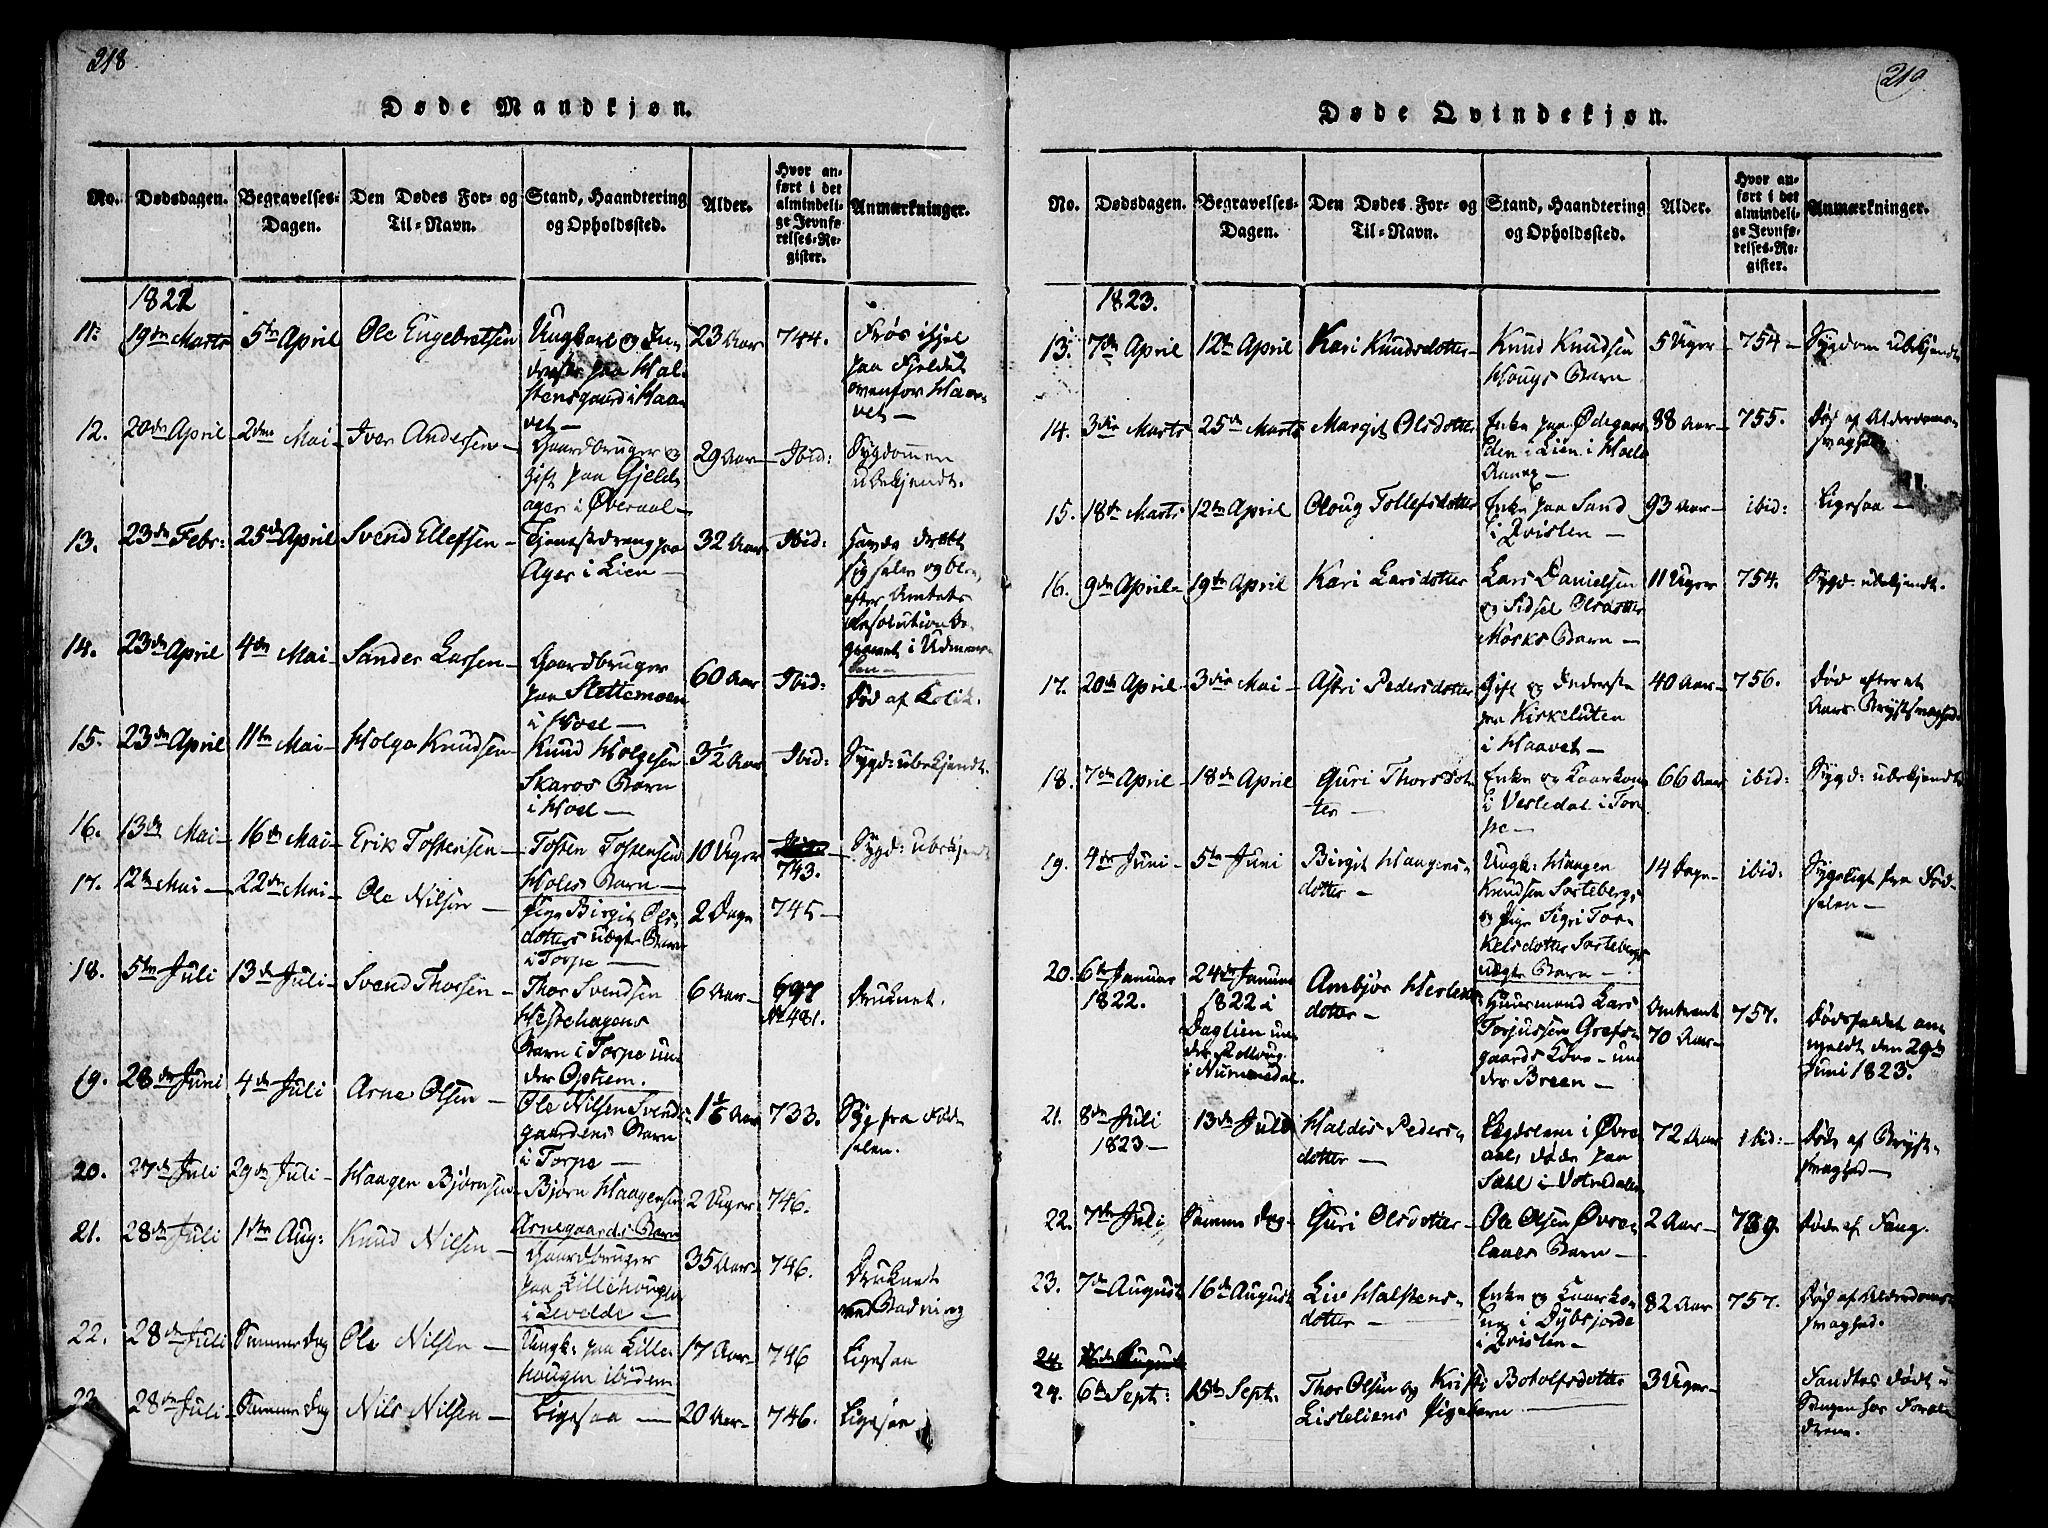 218
Døde Mandkjøn.
No. Dødsdagen. Begravelses-Dagen. Den Dødes For- og Til-Navn. Stand, Haandtering og Opholdssted. Alder. Hvor anført i det almindelige Jevnførelses-Register. Anmærkninger.
1822
11. 19de Marts 5te April Ole Engebretsen Ungkarl og
paa Hal-
stensgaard i Haa
vet – 23 Aar 744. Frøs ihjel
paa Fjeldet
ovenfor Haa-
vet –
12. 20de April 2den Mai Iver Andersen Gaardbruger og
Gift paa Gjelds
ager i Øveraal – 29 Aar Ibid: Sygdommen
ubekjendt.
13. 23de Febr: 25de April Svend Ellefsen – Tjenestedreng paa
Ager i Lien – 32 Aar Ibid: havde dræbt
sig selv og blev
efter Amtets
Resolution be-
gravet i Udmar-
ken –
14. 23de April 4de Mai Sander Larsen Gaardbruger
paa Slettemoen
i Hoel – 60 Aar Ibid: Død af Kolik.
15. 23de April 11te Mai Holge Knudsen Knud Holgesen
Skaros Barn
i Hoel – 3½ Aar Ibid: Sygd: ubekjendt.
16. 13de Mai 16de Mai Erik Tostensen – Tosten Tostensen
Holes Barn – 10 Uger 743. Sygd: ubekjendt
17. 12te Mai 22de Mai Ole Nilsen – Pige Birgit Ols-
dotters uægte Barn
i Torpe – 2 Dage 745 –
18. 5te Juli 13de Juli Svend Thorsen – Thor Svendsen
Hestehagens
Barn i Torpe un
der Opheim. 6 Aar 697
No 481. Druknet.
19. 28de Juni 4de Juli Arne Olsen – Ole Nilsen Svends-
gaardens Barn
i Torpe – Aar 733. Syg fra Fød-
selen.
20. 27de Juli 29de Juli Haagen Bjørnsen Bjørn Haagensen
Arnegaards Barn 2 Uger 746.
21. 28de Juli 1ste Aug: Knud Nilsen – Gaardbruger
paa Lillehougen
i Levelde – 35 Aar 746. Druknet
ved Badning
22. 28de Juli Samme Dag Ole Nilsen – Ungk: paa Lille-
hougen ibidem 17 Aar 746 Ligesaa
23. 28de Juli Samme Dag Nils Nilsen – Ligesaa – 20 Aar 746. Ligesaa
219
Døde Qvindekjøn.
No. Dødsdagen. Begravelses-Dagen. Den Dødes For- og Til-Navn. Stand, Haandtering og Opholdssted. Alder. Hvor anført i det almindelige Jevnførelses-Register. Anmærkninger.
1823.
13. 7de April 12te April Kari Knudsdotter Knud Knudsen
Hougs Barn 5 Uger 754 Sygdom ubekjendt
14. 3die Marts 25de Marts Margit Olsdotter Enke paa Ødegaar
den i Lien i Hoels
Annex – 88 Aar 755. Død af Alderdoms-
svaghed
15. 18de Marts 12te April Oloug Tollefsdotter Enke paa Sand
i Qvislen – 93 Aar ibid: Ligesaa –
16. 9de April 19de April Kari Larsdotter Lars Danielsen
og Sidsel Olsdotter
Mørks Barn – 11 Uger 754. Sygd: ubekjendt.
17. 20de April 3die Mai Astri Pedersdotter Gift og Inderste
paa Kirkeluten
i Haavet – 40 Aar 756. Død efter et
Aars Brystsvaghed
18. 7de April 18de April Guri Thorsdot-
ter – Enke og Kaarkone
i Vesledal i Tor-
pe – 66 Aar ibid: Sygd: ubekjendt
19. 4de Juni 5te Juni Birgit Haagens-
dotter – Ungk: Haagen
Knudsen Sortebergs
og Pige Sigri Tor-
kelsdotter Sortebergs
uægte Barn – 14 Dage ibid: Sygeligt fra Fød-
selen –
20. 6te Januar
1822. 24de Januar
1822 i
Daglien un-
der Rolloug
i Nummedal. Ambjør
dotter – Huusmand Lars
Torjussen Grøfs-
gaards Kone – un
der Breen – Omtrent
70 Aar 757. Dødsfaldet an
meldt den 29de
Juni 1823.
21. 8de Juli
1823 – 13de Juli Haldis Peders-
dotter – Lægdslem i Øvre
aal, døde paa
Sæhl i Votndalen 72 Aar ibid: Døde af Bryst-
svaghed –
22. 7de Juli Samme Dag Guri Olsdotter Ole Olsen Øvre-
laaes Barn – 2 Aar 739. Døde af Tæng.
23. 7de August 16de August Liv Halstens-
dotter – Enke og Kaarko-
ne i Dybsjorde
i Qvislen – 82 Aar 757. Død af Alderdoms-
svaghed.
24 16de August
24. 6te Sept: 15te Sept: Thor Olsen og Kristi Botolfsdotter
Listeliens Pigebarn – 3 Uger Fandtes Dødt i
Sengen hos Foræl
drene.